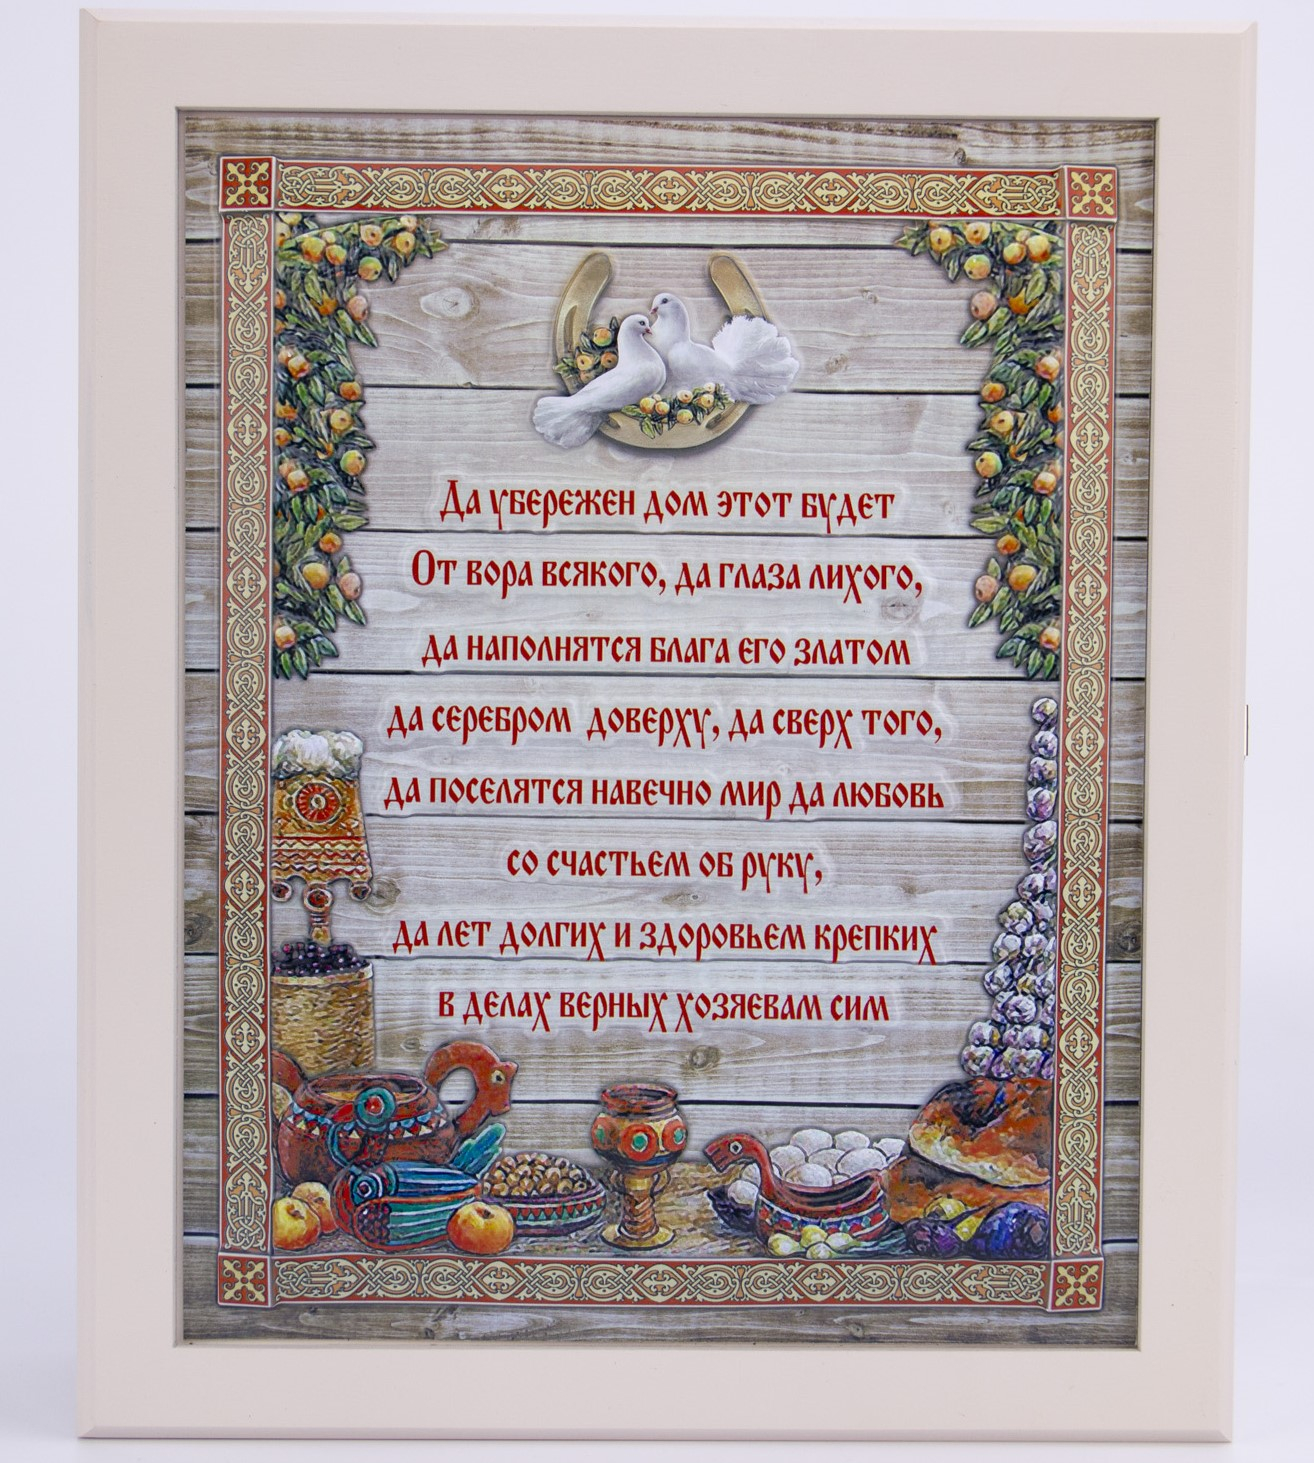 Да убережен дом этот будет
От вора всякого, да глаза лихого,
да наполнятся блага его златом
да серебром доверху, да сверх того,
да поселятся навечно мир да любовь
со счастьем об руку,
да лет долгих и здоровьем крепких
в делах верных хозяевам сим